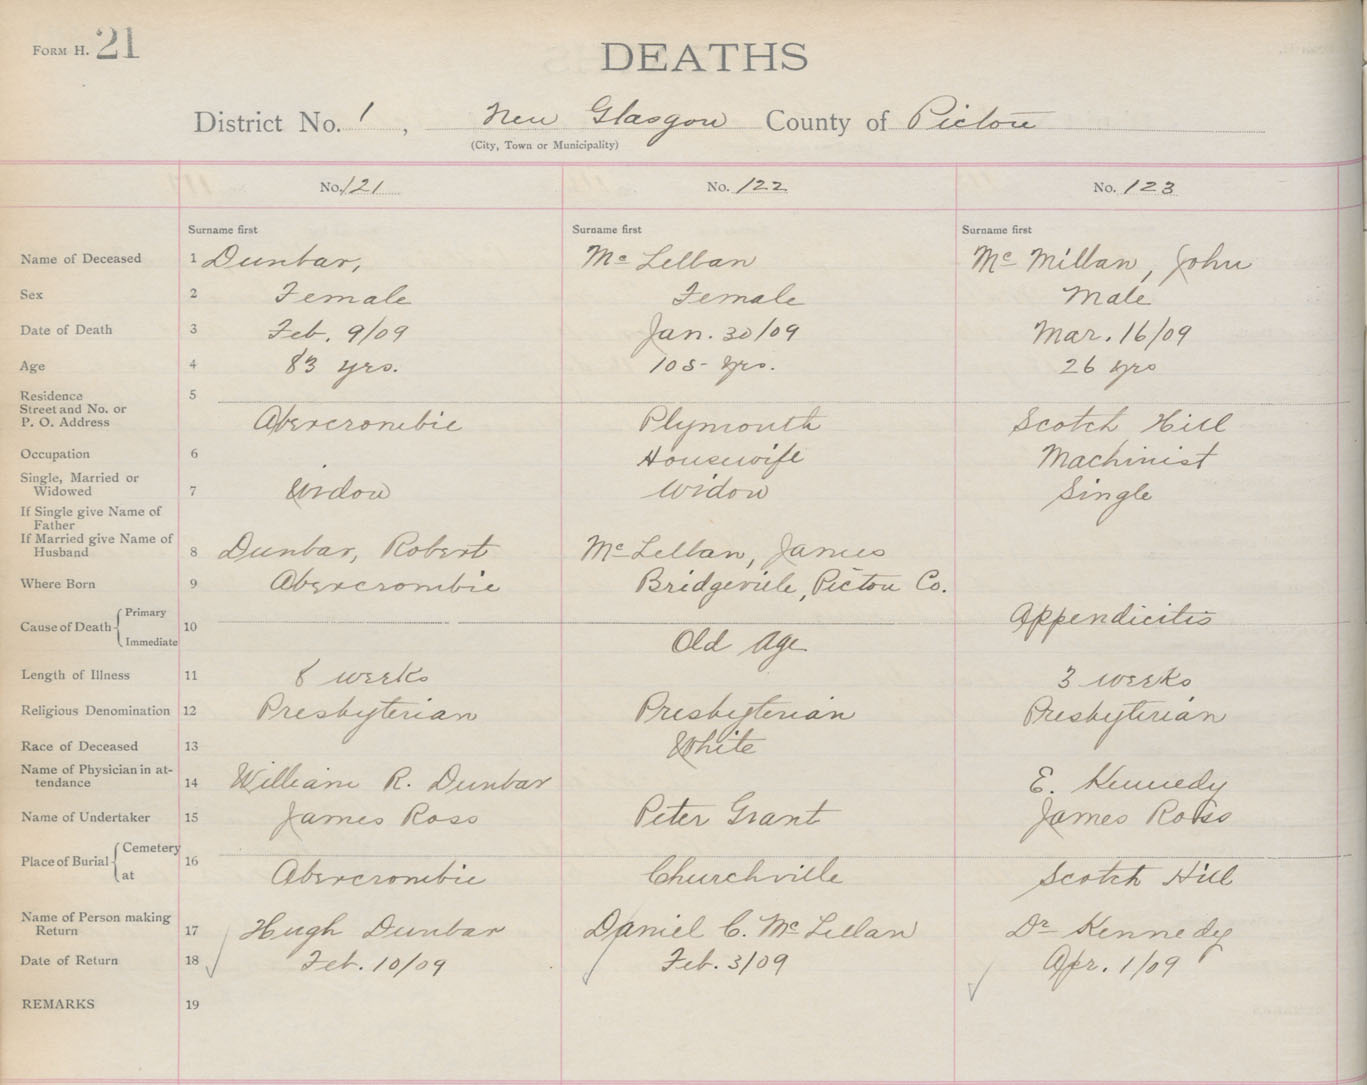 FORM H. 21
DEATHS
District No. 1, New Glasgow County of Pictou
(City, Town or Municipality)
No. 121 No. 122 No. 123
Surname first Surname first Surname first
Name of Deceased 1 Dunbar, Mc Lellan Mc Millan, John
Sex 2 Female Female Male
Date of Death 3 Feb. 9/09 Jan. 30/09 Mar. 16/09
Age 4 83 yrs. 105 yrs. 26 yrs
Residence 5
Street and No. or
P. O. Address Abercrombie Plymouth Scotch Hill
Occupation 6 Housewife Machinist
Single, Married or
Widowed 7 Widow Widow Single
If Single give Name of
Father
If Married give Name of
Husband 8 Dunbar, Robert Mc Lellan, James
Where Born 9 Abercrombie Bridgeville, Pictou Co.
Cause of Death Primary 10 Appendicitis
Immediate Old Age
Length of Illness 11 8 weeks 3 weeks
Religious Denomination 12 Presbyterian Presbyterian Presbyterian
Race of Deceased 13 White
Name of Physician in at-
tendance 14 William R. Dunbar E. Kennedy
Name of Undertaker 15 James Ross Peter Grant James Ross
Place of Burial Cemetery 16
at Abercrombie Churchville Scotch Hill
Name of Person making
Return 17 Hugh Dunbar Daniel C. Mc Lellan Dr Kennedy
Date of Return 18 Feb. 10/09 Feb. 3/09 Apr. 1/09
REMARKS 19